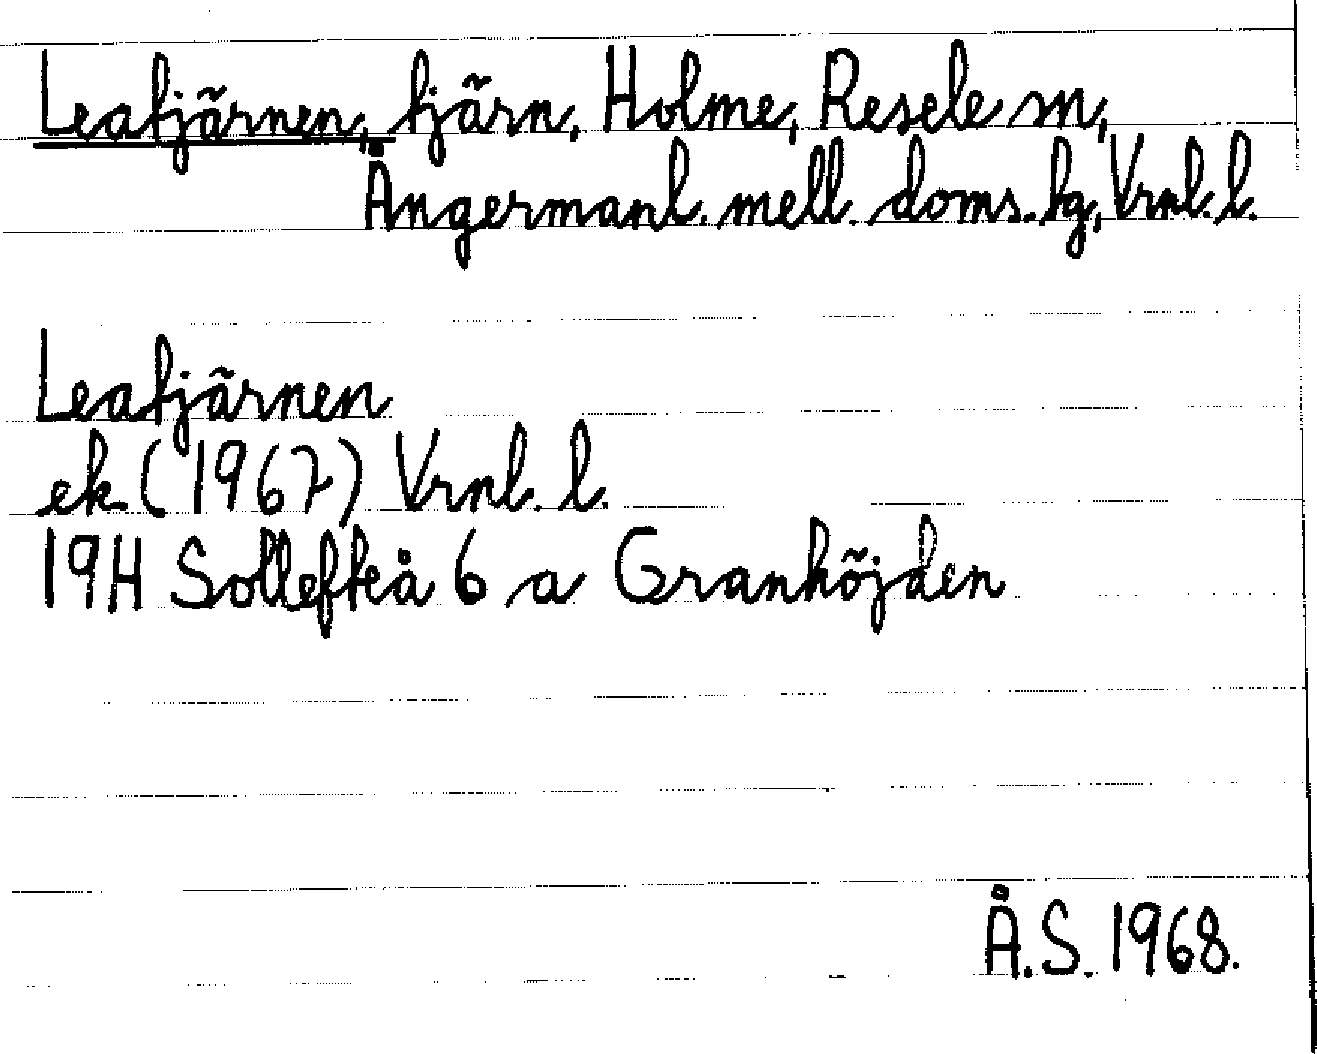 Leatjärnen, tjärn, Holme, Resele sn,
Ångermanl. mell. doms. hg, Vrnl. l.
Leatjärnen
ek (1967) Vrnl. l.
19H Sollefteå 6 a Granhöjden
Å.S. 1968.